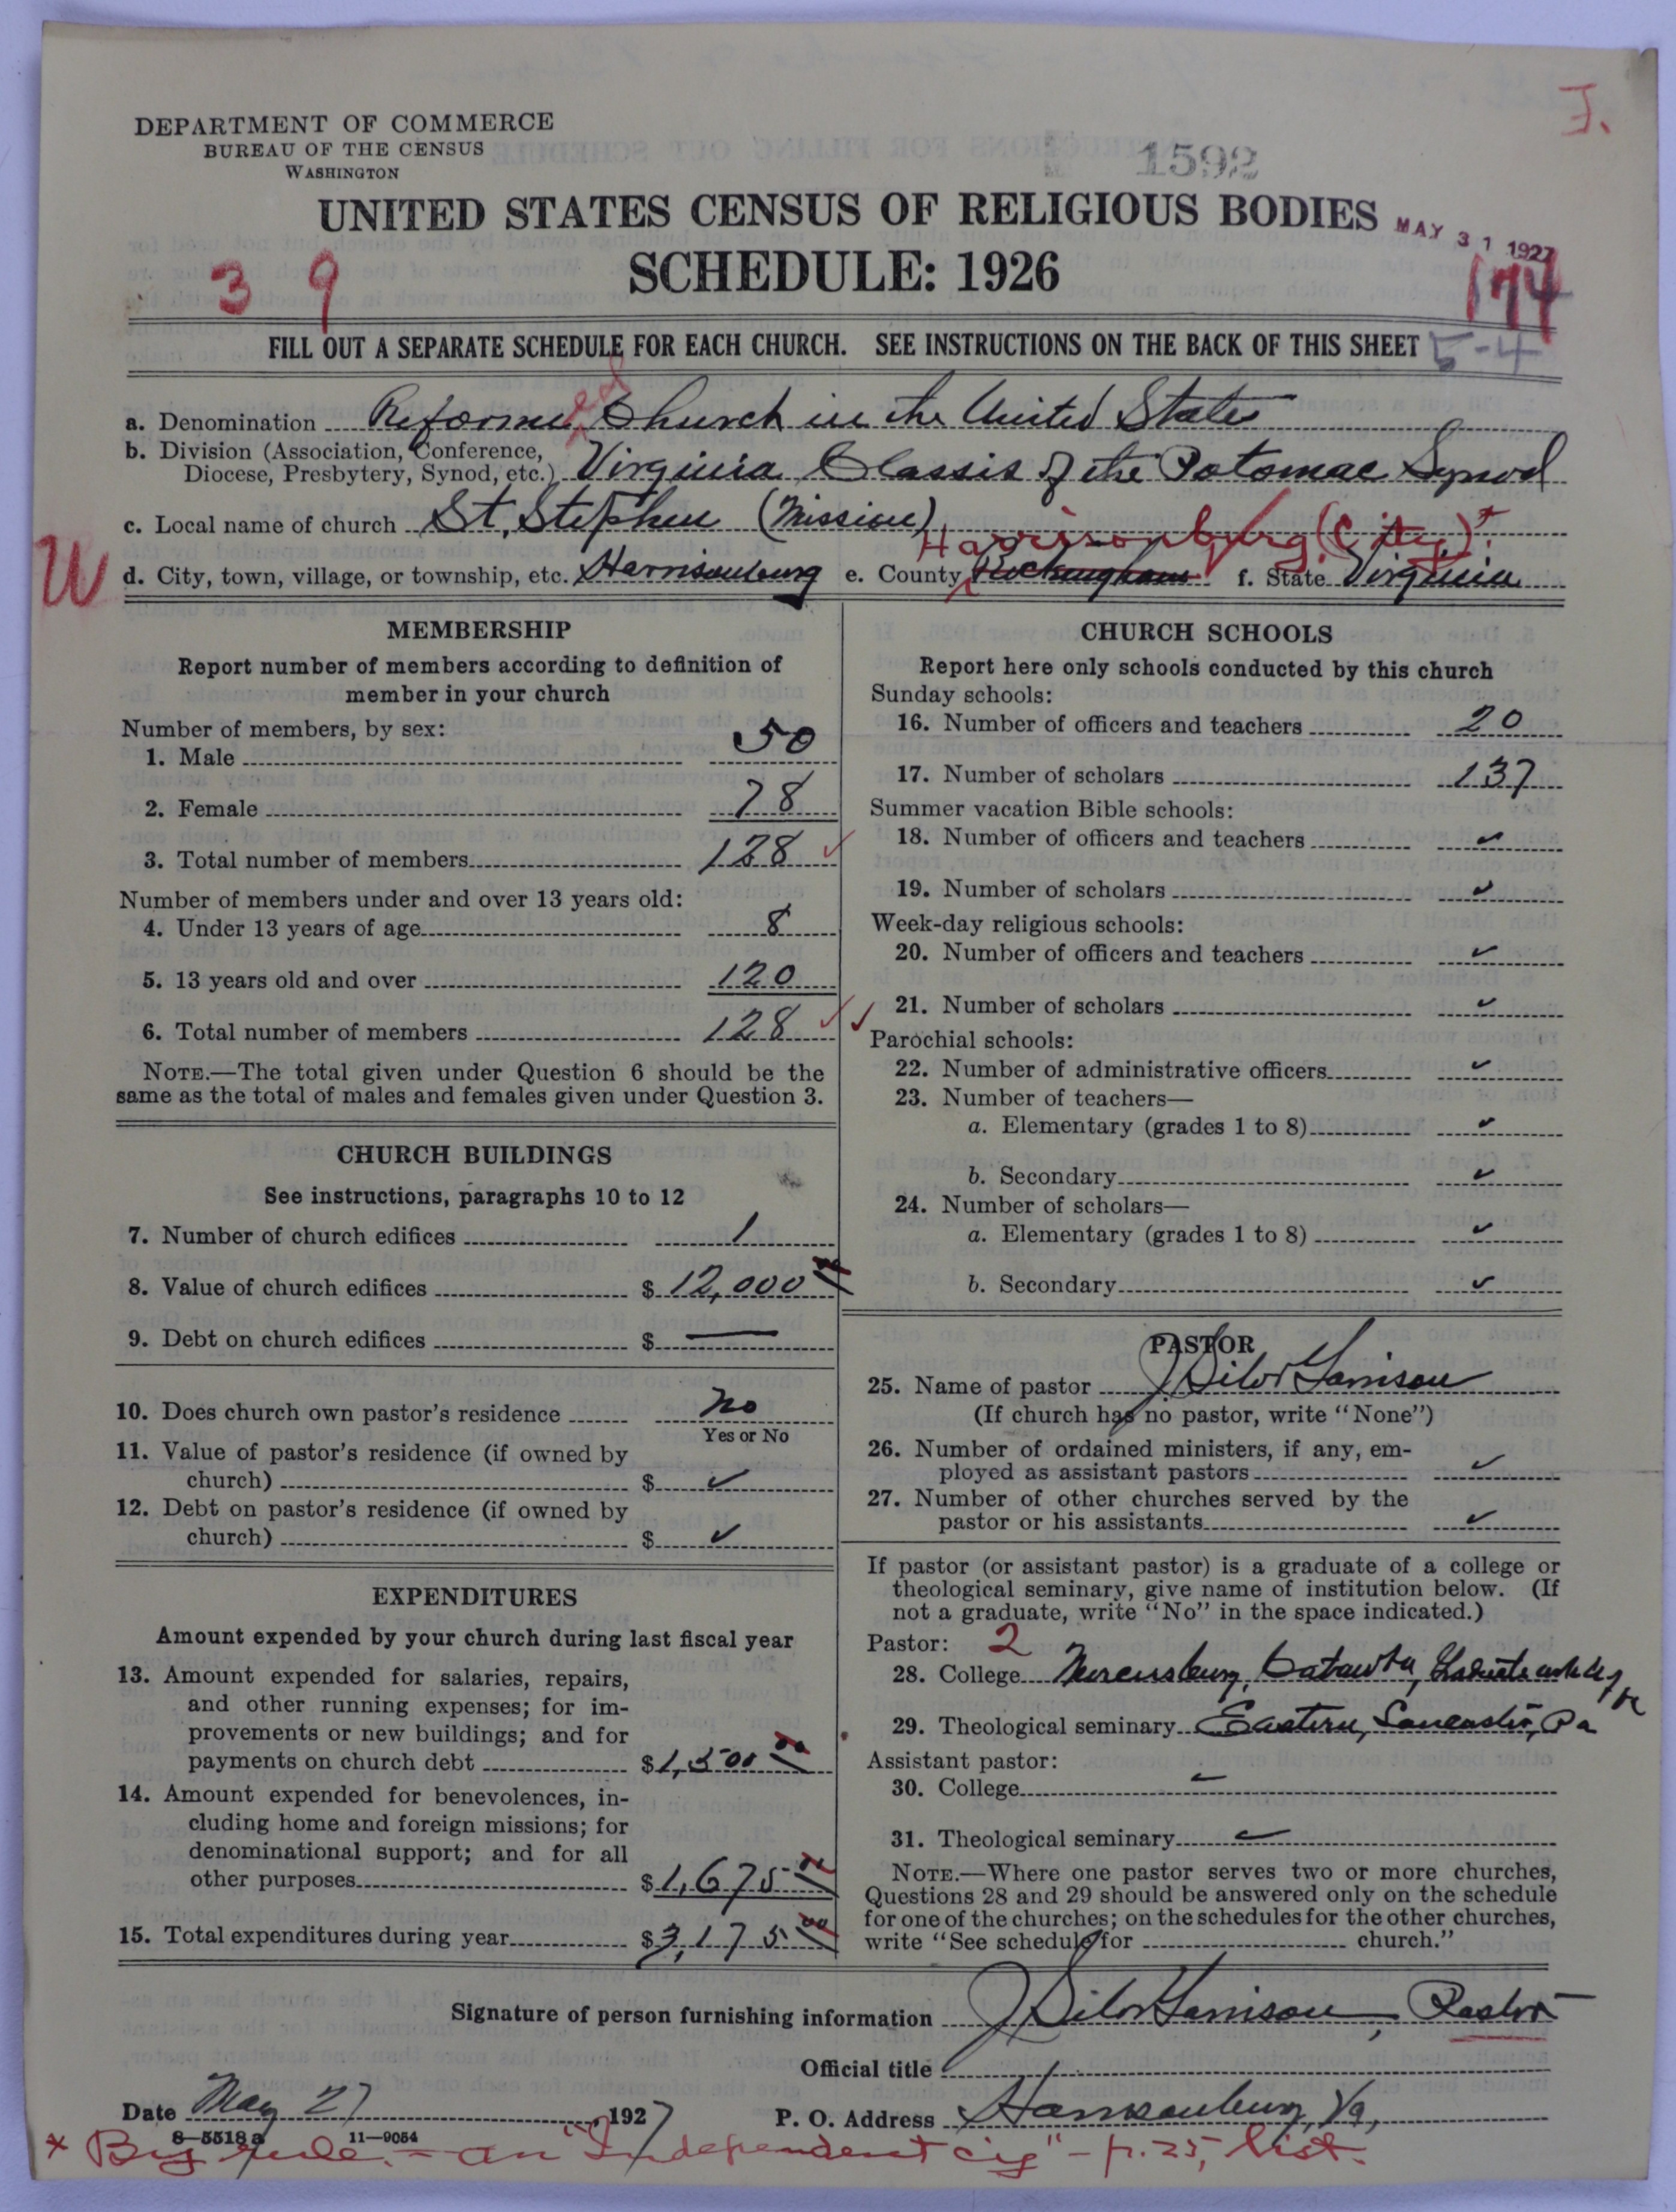 J.
DEPARTMENT OF COMMERCE
BUREAU OF THE CENSUS
WASHINGTON
1592
UNITED STATES CENSUS OF RELIGIOUS BODIES
MAY 31 1927
SCHEDULE: 1926
3 9
174
FILL OUT A SEPARATE SCHEDULE FOR EACH CHURCH. SEE INSTRUCTIONS ON THE BACK OF THIS SHEET
5-4
a. Denomination Reformed Church in the United States
b. Division (Association, Conference,
Diocese, Presbytery, Synod, etc.) Virginia Classis of the Potomac Synod
c. Local name of church St. Stephen (Mission)
Harrisonburg (City)*
W
d. City, town, village, or township, etc. Harrisonburg e. County Rockingham f. State Virginia
MEMBERSHIP
Report number of members according to definition of
member in your church
Number of members, by sex:
1. Male 50
2. Female 78
3. Total number of members 128
Number of members under and over 13 years old:
4. Under 13 years of age 8
5. 13 years old and over 120
6. Total number of members 128
NOTE.—The total given under Question 6 should be the
same as the total of males and females given under Question 3.
CHURCH BUILDINGS
See instructions, paragraphs 10 to 12
7. Number of church edifices 1
8. Value of church edifices $ 12,000 00
9. Debt on church edifices $ —
10. Does church own pastor's residence No
Yes or No
11. Value of pastor's residence (if owned by
church) $ ✓
12. Debt on pastor's residence (if owned by
church) $ ✓
EXPENDITURES
Amount expended by your church during last fiscal year
13. Amount expended for salaries, repairs,
and other running expenses; for im-
provements or new buildings; and for
payments on church debt $ 1,500 00
14. Amount expended for benevolences, in-
cluding home and foreign missions; for
denominational support; and for all
other purposes $ 1,675 00
15. Total expenditures during year $ 3,175 00
CHURCH SCHOOLS
Report here only schools conducted by this church
Sunday schools:
16. Number of officers and teachers 20
17. Number of scholars 137
Summer vacation Bible schools:
18. Number of officers and teachers ✓
19. Number of scholars ✓
Week-day religious schools:
20. Number of officers and teachers ✓
21. Number of scholars ✓
Parochial schools:
22. Number of administrative officers ✓
23. Number of teachers—
a. Elementary (grades 1 to 8) ✓
b. Secondary ✓
24. Number of scholars—
a. Elementary (grades 1 to 8) ✓
b. Secondary ✓
PASTOR
25. Name of pastor J Silor Garrison
(If church has no pastor, write "None")
26. Number of ordained ministers, if any, em-
ployed as assistant pastors ✓
27. Number of other churches served by the
pastor or his assistants ✓
If pastor (or assistant pastor) is a graduate of a college or
theological seminary, give name of institution below. (If
not a graduate, write "No" in the space indicated.)
Pastor: 2
28. College Mercersburg, Catawba, Graduate
29. Theological seminary Eastern, Lancaster, Pa
Assistant pastor:
30. College ✓
31. Theological seminary ✓
NOTE.—Where one pastor serves two or more churches,
Questions 28 and 29 should be answered only on the schedule
for one of the churches; on the schedules for the other churches,
write "See schedule for church."
Signature of person furnishing information J Silor Garrison, Pastor
Official title
Date May 27, 1927
P. O. Address Harrisonburg, Va,
8—5518a 11—9054
* By rule. - an "Independent city" - p. 25, list.